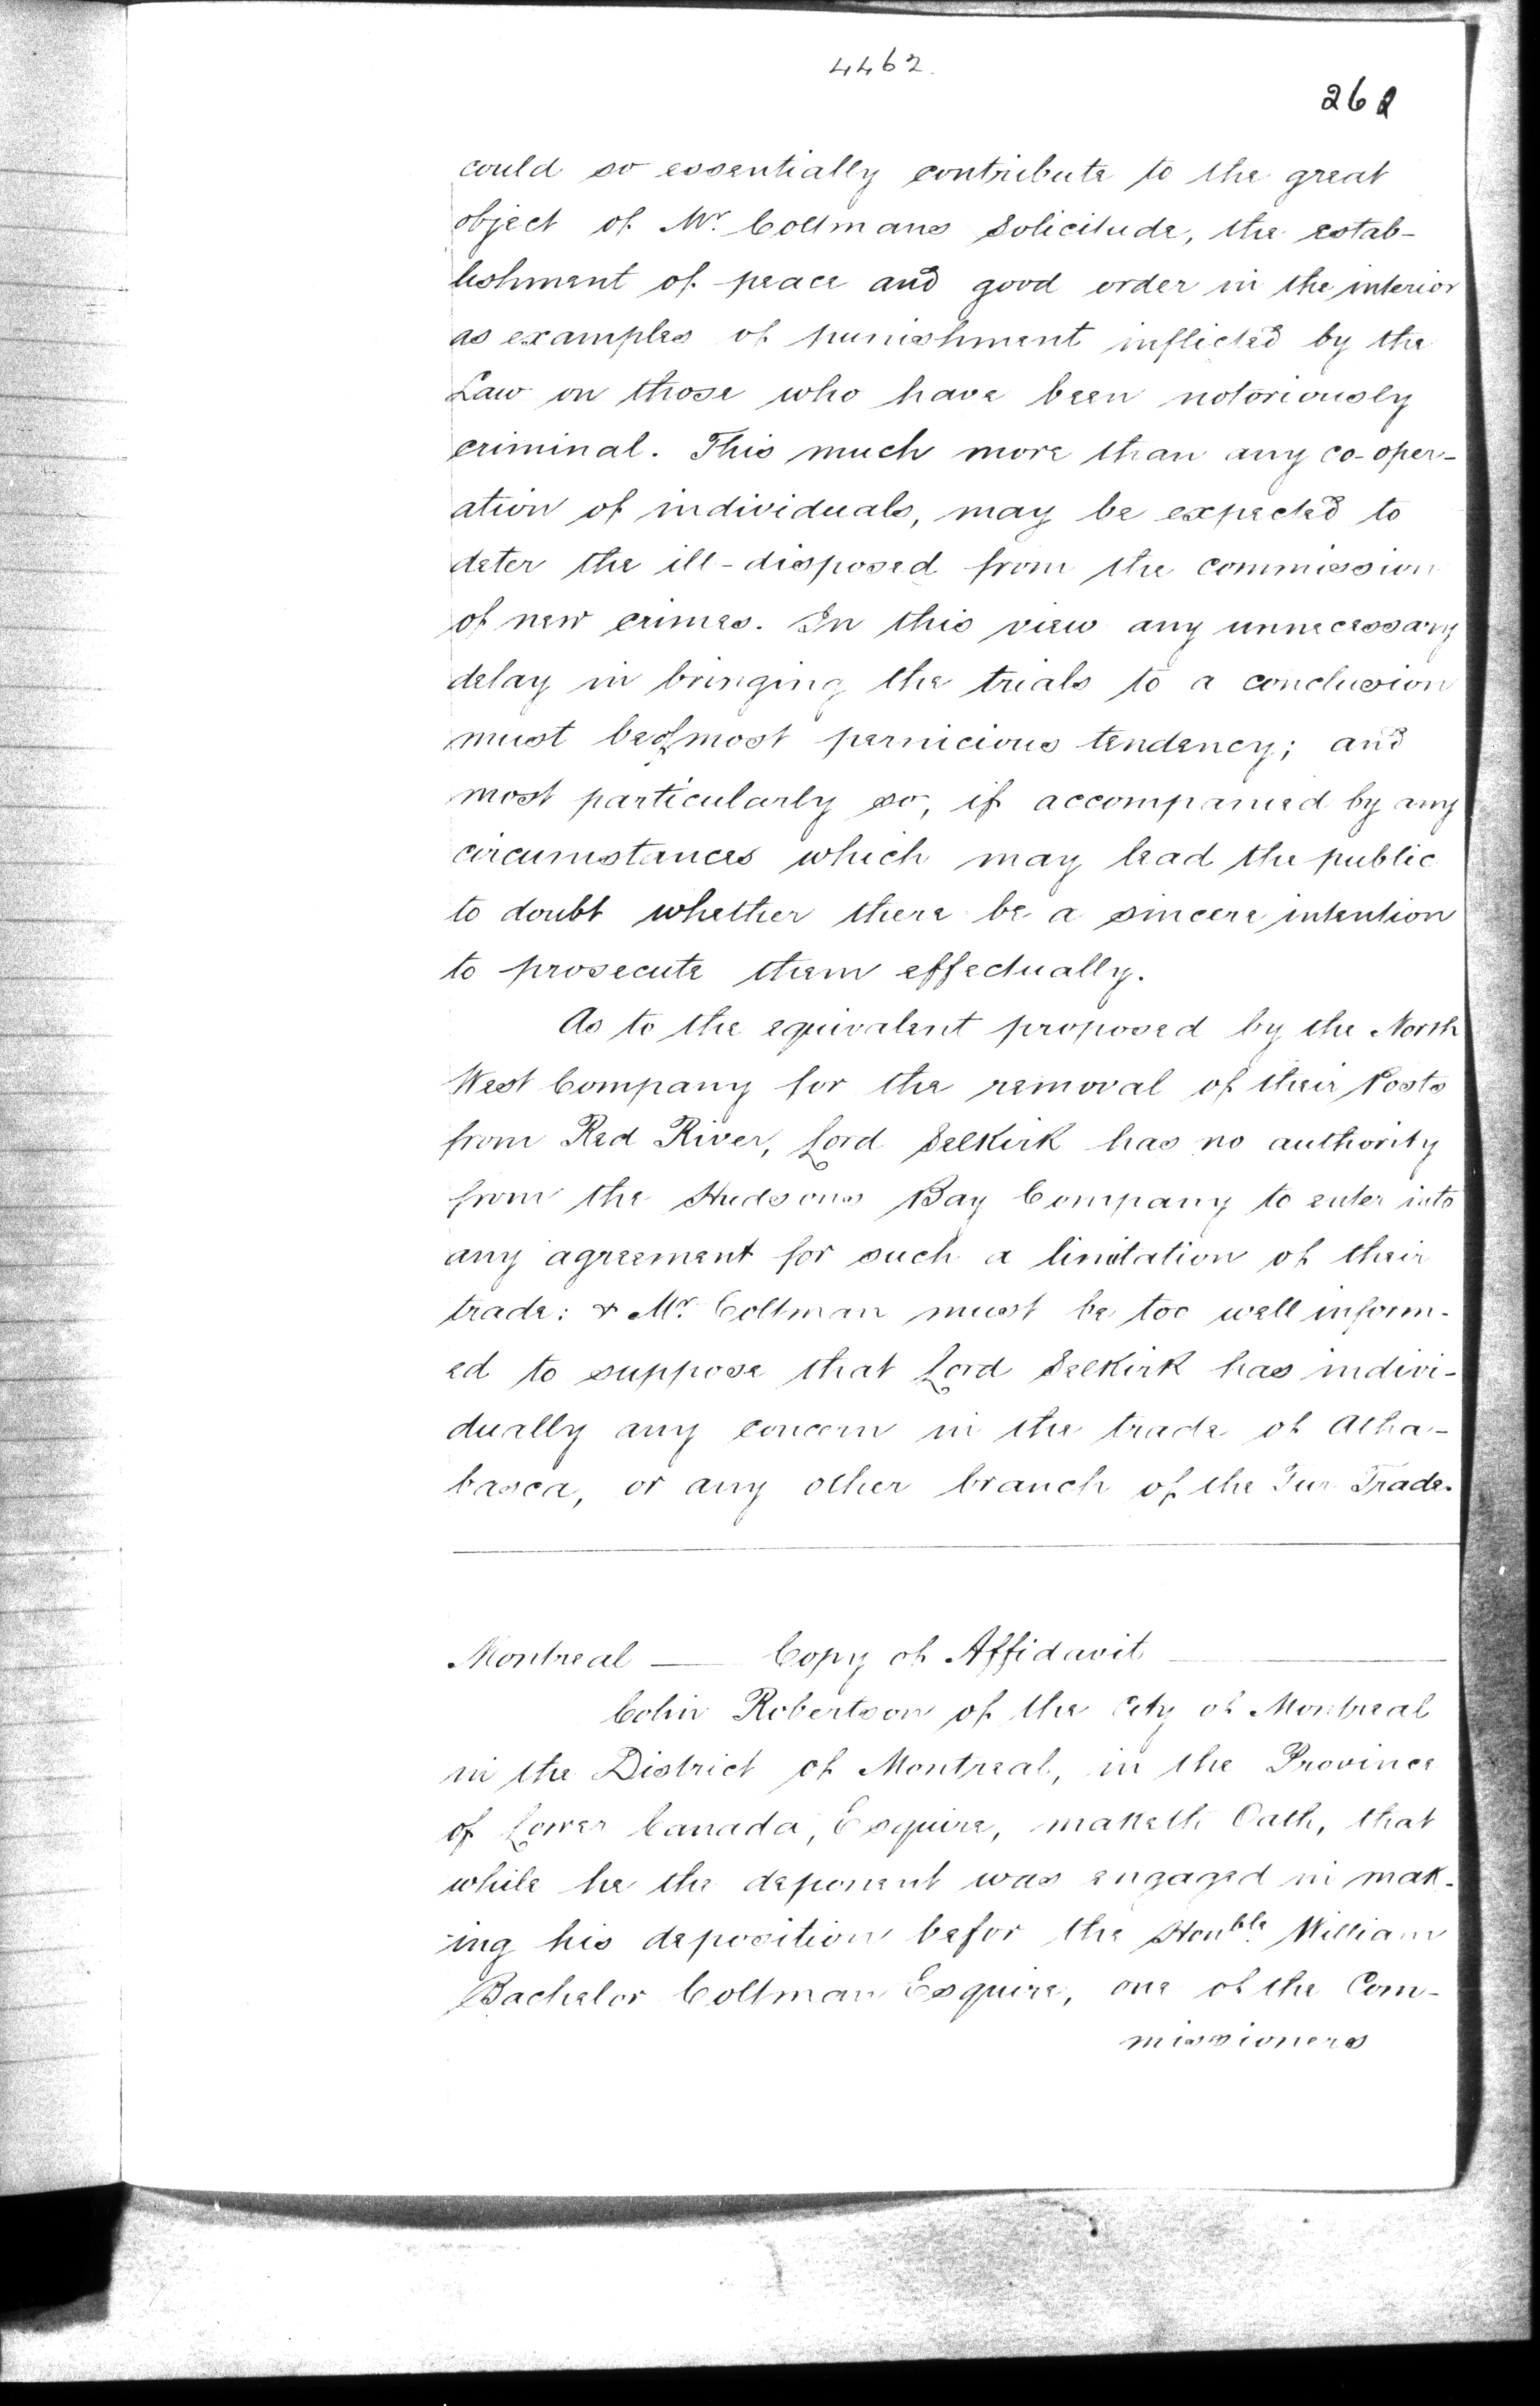 4462.
262
could so essentially contribute to the great
object of Mr. Coltmans Solicitude, the estab-
lishment of peace and good order in the interior
as examples of punishment inflicted by the
Law on those who have been notoriously
criminal. This much more than any co-oper-
ation of individuals, may be expected to
deter the ill-disposed from the commission
of new crimes. In this view any unnecessary
delay in bringing the trials to a conclusion
must be of most pernicious tendency; and
most particularly so, if accompanied by any
circumstances which may lead the public
to doubt whether there be a sincere intention
to prosecute them effectually.
As to the equivalent proposed by the North
West Company for the removal of their Posts
from Red River, Lord Selkirk has no authority
from the Hudsons Bay Company to enter into
any agreement for such a limitation of their
trade: & Mr. Coltman must be too well inform-
ed to suppose that Lord Selkirk has indivi-
dually any concern in the trade of Atha-
basca, or any other branch of the Fur Trade.
Montreal — Copy of Affidavit —
Colin Robertson of the City of Montreal
in the District of Montreal, in the Province
of Lower Canada, Esquire, maketh Oath, that
while he the deponent was engaged in mak-
ing his deposition befor the Honble. William
Bachelor Coltman Esquire, one of the Com-
missioners